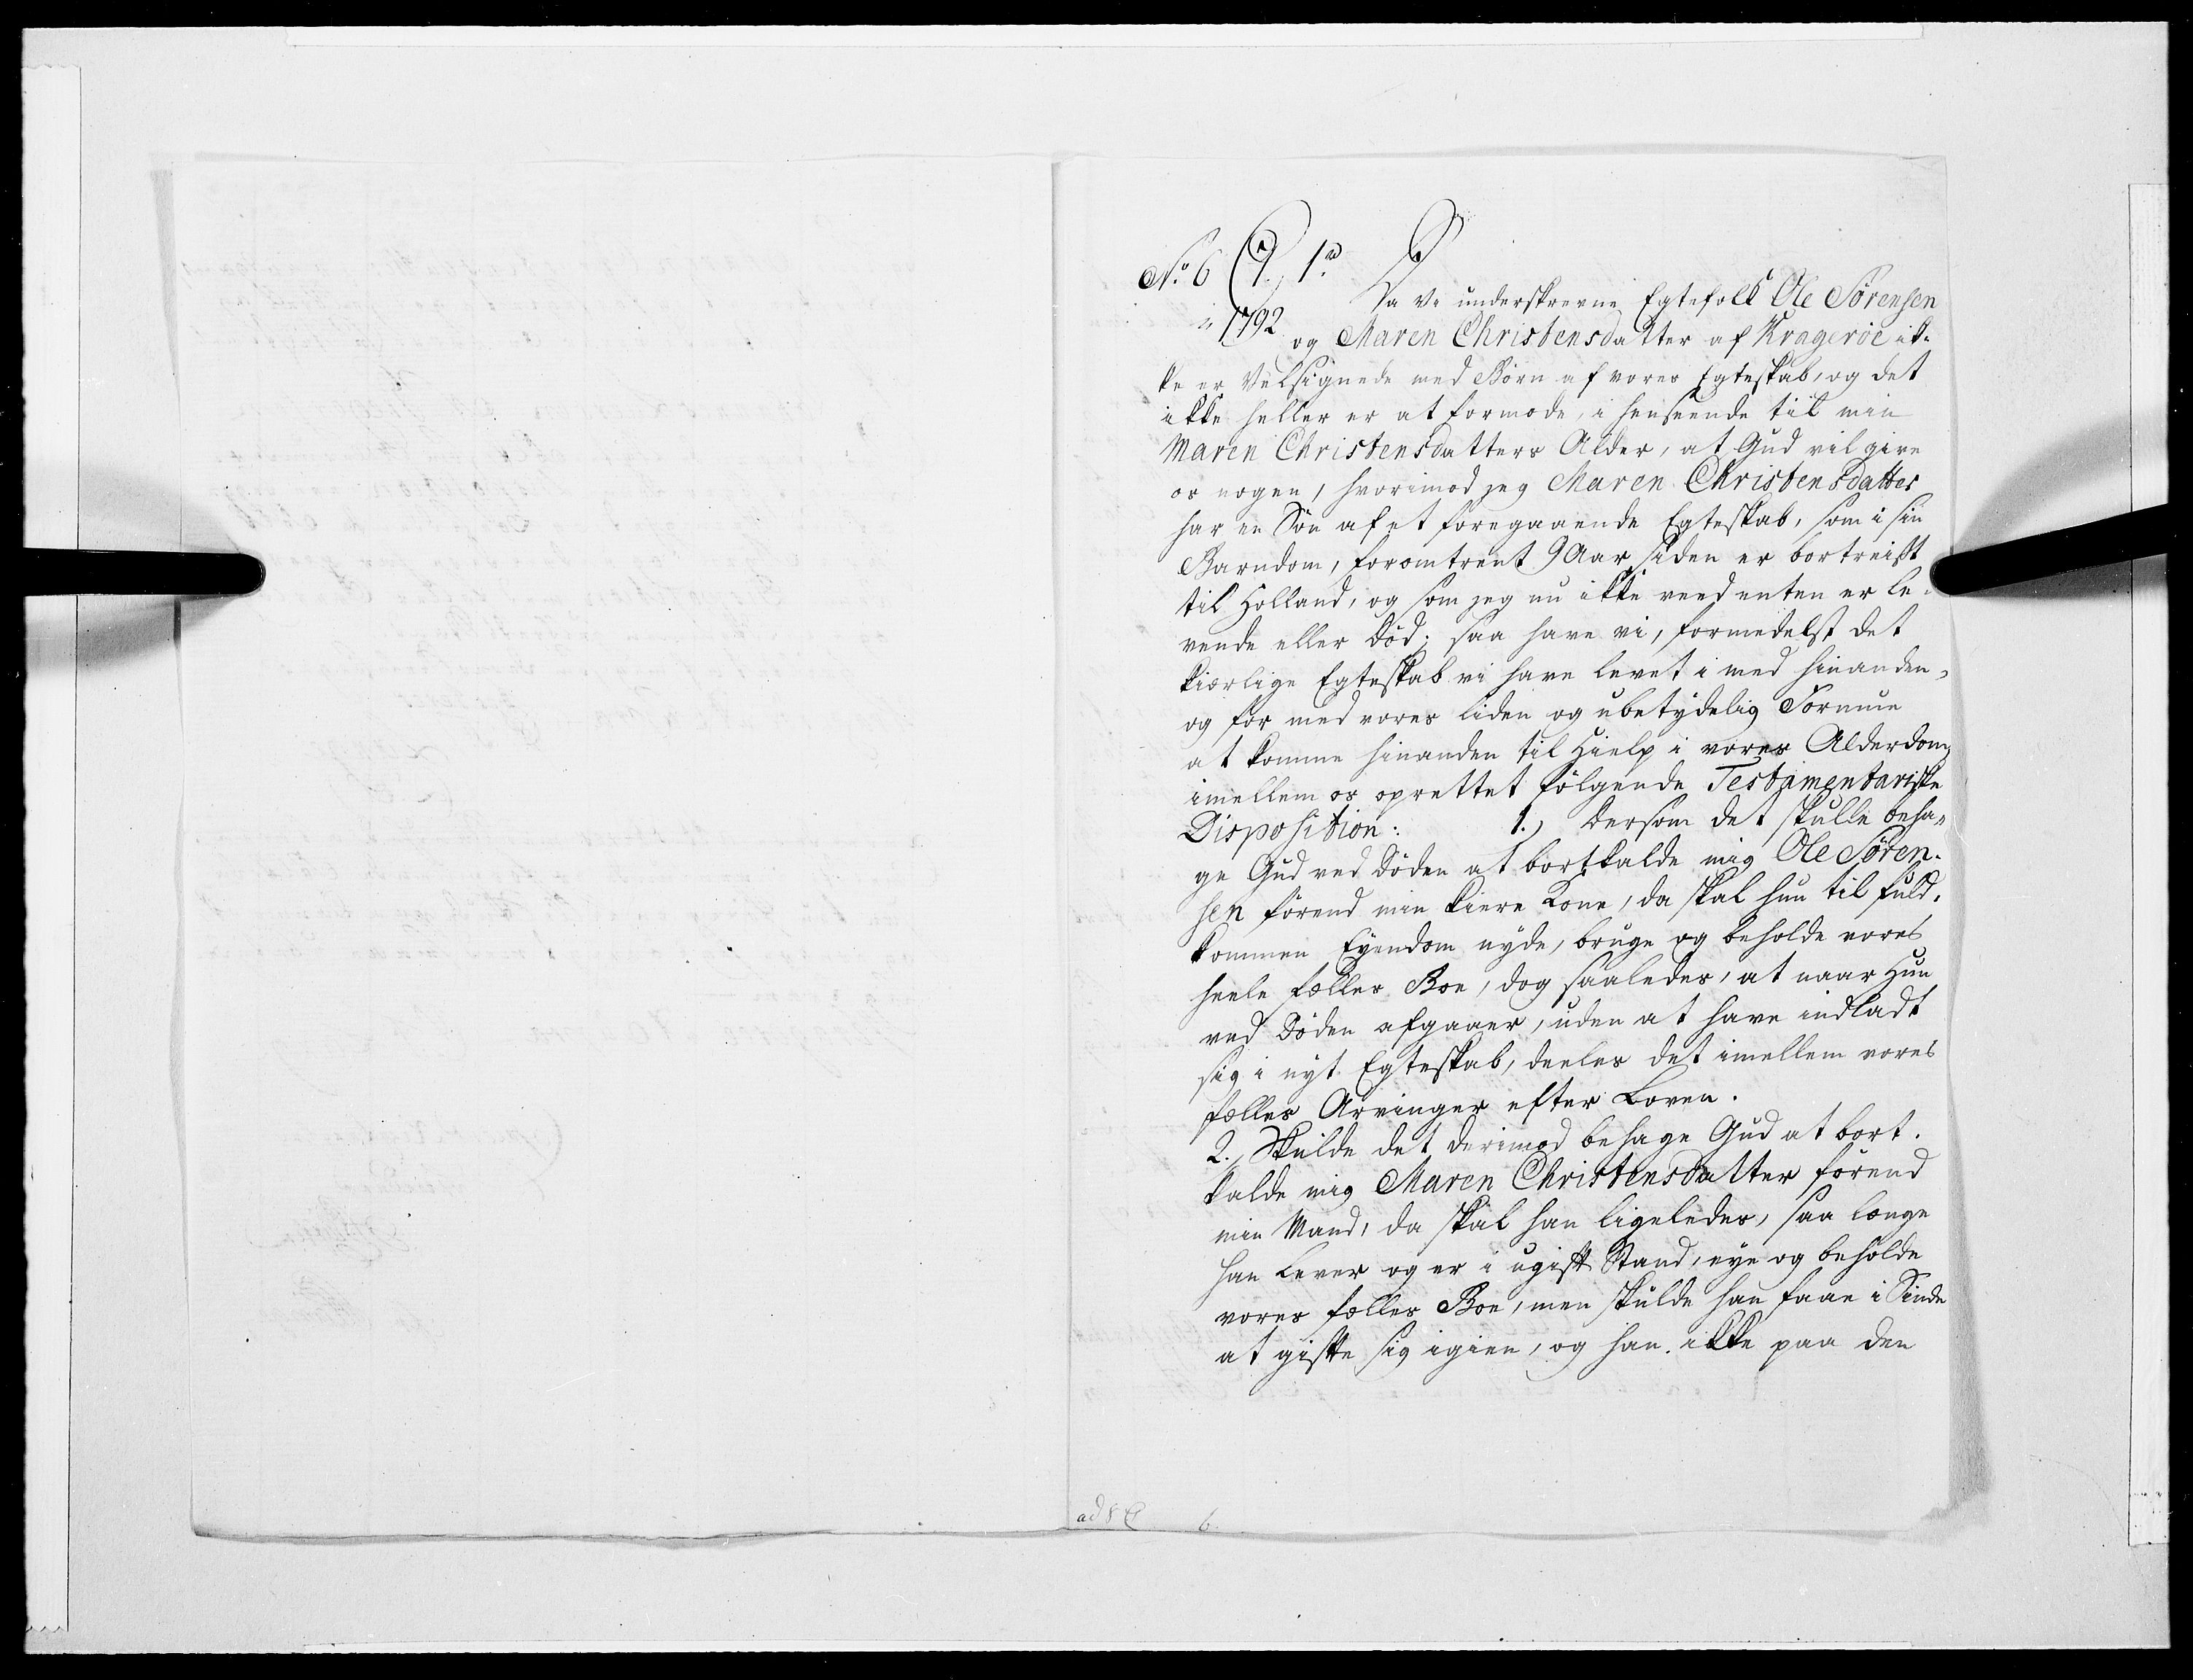 No. 6
1792
Da Vi underskrevne Egtefolk Ole Sørensen
og Maren Christensdatter af Kragerøe ik-
ke er Velsignede med Børn af vores Egteskab, og det
ikke heller er at formode, i henseende til min
Maren Christensdatters Alder, at Gud vil give
os nogen, hvorimod jeg Maren Christensdatter
har en Søn af et foregaaende Egteskab, som i sin
Barndom, for omtrent 9 Aar siden er bortreist
til Holland, og som jeg nu ikke veed enten er le-
vende eller død; saa have vi, formedelst det
kiærlige Egteskab vi have levet i med hinanden,
og for med vores liden og ubetydelig Formue
at komme hinanden til Hielp i vores Alderdom,
imellem os oprettet følgende Testamentariske
Disposition: 1.) Dersom det skulle beha-
ge Gud ved Døden at bortkalde mig Ole Søren-
sen førend min kiere Kone, da skal hun til fuld-
kommen Eyendom nyde, bruge og beholde vores
heele fælles Boe, dog saaledes, at naar Hun
ved Døden afgaaer, uden at have indladt
sig i nyt Egteskab, deeles det imellem vores
fælles Arvinger efter Loven.
2.) Skulde det derimod behage Gud at bort-
kalde mig Maren Christensdatter førend
min Mand, da skal han ligeledes, saa længe
han Lever og er i ugift Stand, eye og beholde
vores fælles Boe, men skulde han faae i Sinde
at gifte sig igien, og han ikke paa den
ad 8 6